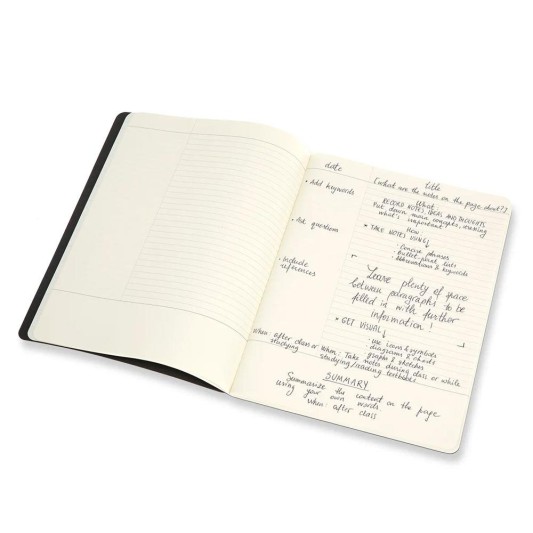 date
title
[what are the notes on the page about?]
• Add keywords
What:
RECORD NOTES, IDEAS AND THOUGHTS
Put down main concepts, evoking
what's important
• Ask question
How:
* TAKE NOTES USING
• Concise phrases
• Bullet-point lists
• Abbreviations & keywords
• include
references
Leave plenty of space
between paragraphs to be
filled in with further
information!
* GET VISUAL
• Use icons & symbols
diagrams & charts
graphs & sketches
When: after class or
studying
When: Take notes during class or while
studying/reading textbooks
SUMMARY
Summarize the content on the page
using your own words
when: after class